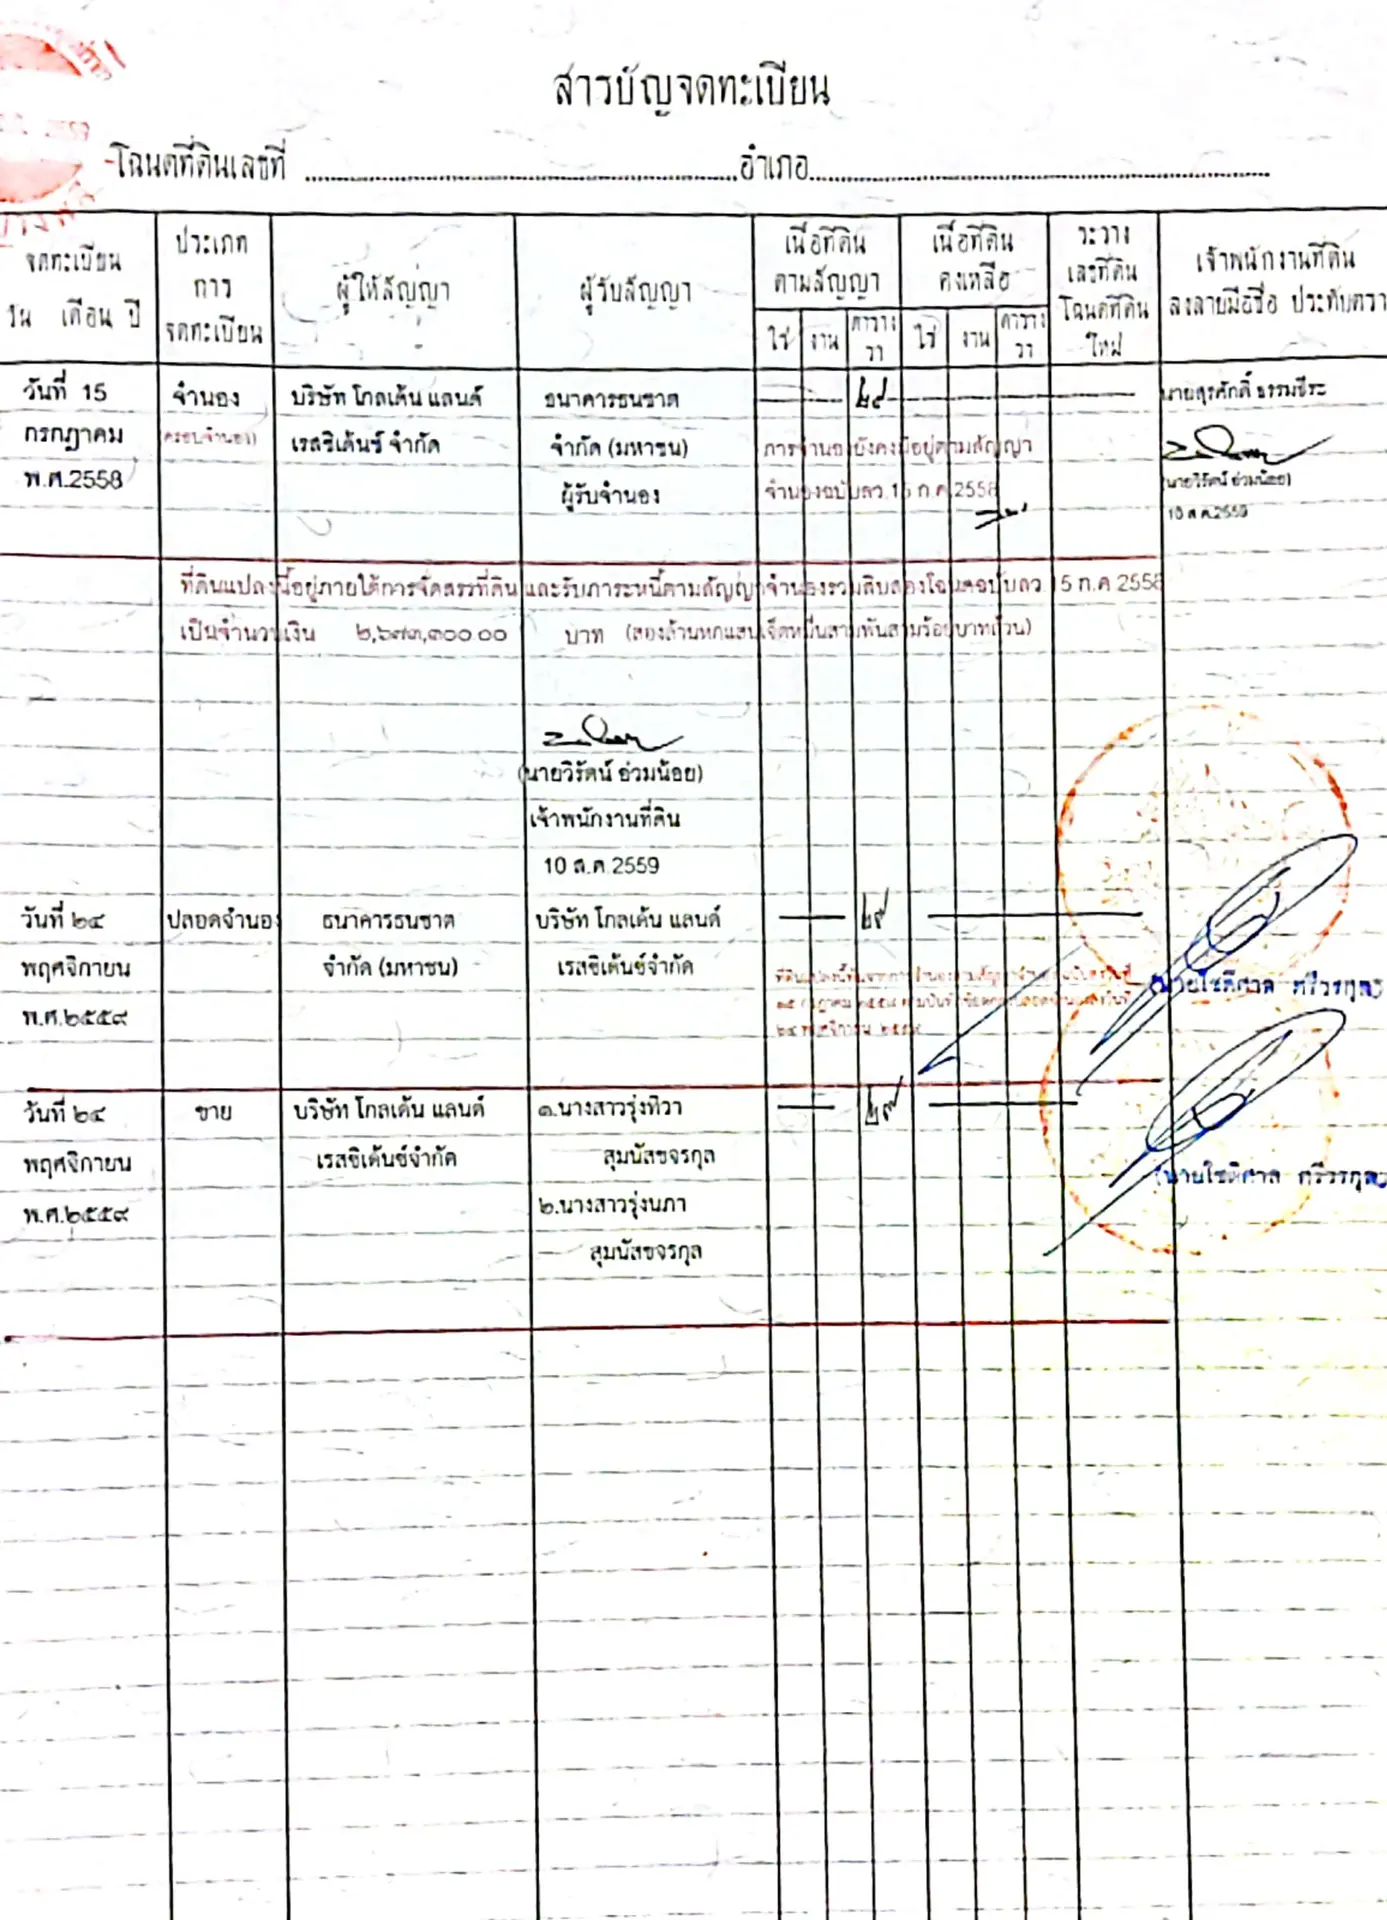 สารบัญจดทะเบียน
โฉนดที่ดินเลขที่ ........ อำเภอ ........
จดทะเบียน วัน เดือน ปี
ประเภท การ จดทะเบียน
ผู้ให้สัญญา
ผู้รับสัญญา
เนื้อที่ดิน ตามสัญญา
ไร่ งาน ตาราง วา
เนื้อที่ดิน คงเหลือ
ไร่ งาน ตาราง วา
ระวาง เลขที่ดิน โฉนดที่ดิน ใหม่
เจ้าพนักงานที่ดิน ลงลายมือชื่อ ประทับตรา
วันที่ 15 จำนอง บริษัท โกลเด้น แลนด์ ธนาคารธนชาต นายสุรศักดิ์ ธรรมธีระ
กรกฎาคม ครอบจำนอง) เรสซิเด้นซ์ จำกัด จำกัด (มหาชน) การจำนองยังคงมีอยู่ตามสัญญา
พ.ศ.2558 ผู้รับจำนอง จำนองฉบับลว.15 ก.ค.2558 (นายวิรัตน์ อ่วมน้อย)
10 ส.ค.2559
ที่ดินแปลงนี้อยู่ภายใต้การจัดสรรที่ดิน และรับภาระหนี้ตามสัญญาจำนองรวมสิบสองโฉนดฉบับลว 15 ก.ค 2558
เป็นจำนวนเงิน ๒,๖๗๓,๓๐๐.๐๐ บาท (สองล้านหกแสนเจ็ดหมื่นสามพันสามร้อยบาทถ้วน)
(นายวิรัตน์ อ่วมน้อย)
เจ้าพนักงานที่ดิน
10 ส.ค.2559
วันที่ ๒๔ ปลอดจำนอง ธนาคารธนชาต บริษัท โกลเด้น แลนด์ ๒๙
พฤศจิกายน จำกัด (มหาชน) เรสซิเด้นซ์จำกัด
พ.ศ.๒๕๕๙
วันที่ ๒๔ ขาย บริษัท โกลเด้น แลนด์ ๑.นางสาวรุ่งทิวา ๒๙
พฤศจิกายน เรสซิเด้นซ์จำกัด สุมนัสขจรกุล
พ.ศ.๒๕๕๙ ๒.นางสาวรุ่งนภา
สุมนัสขจรกุล